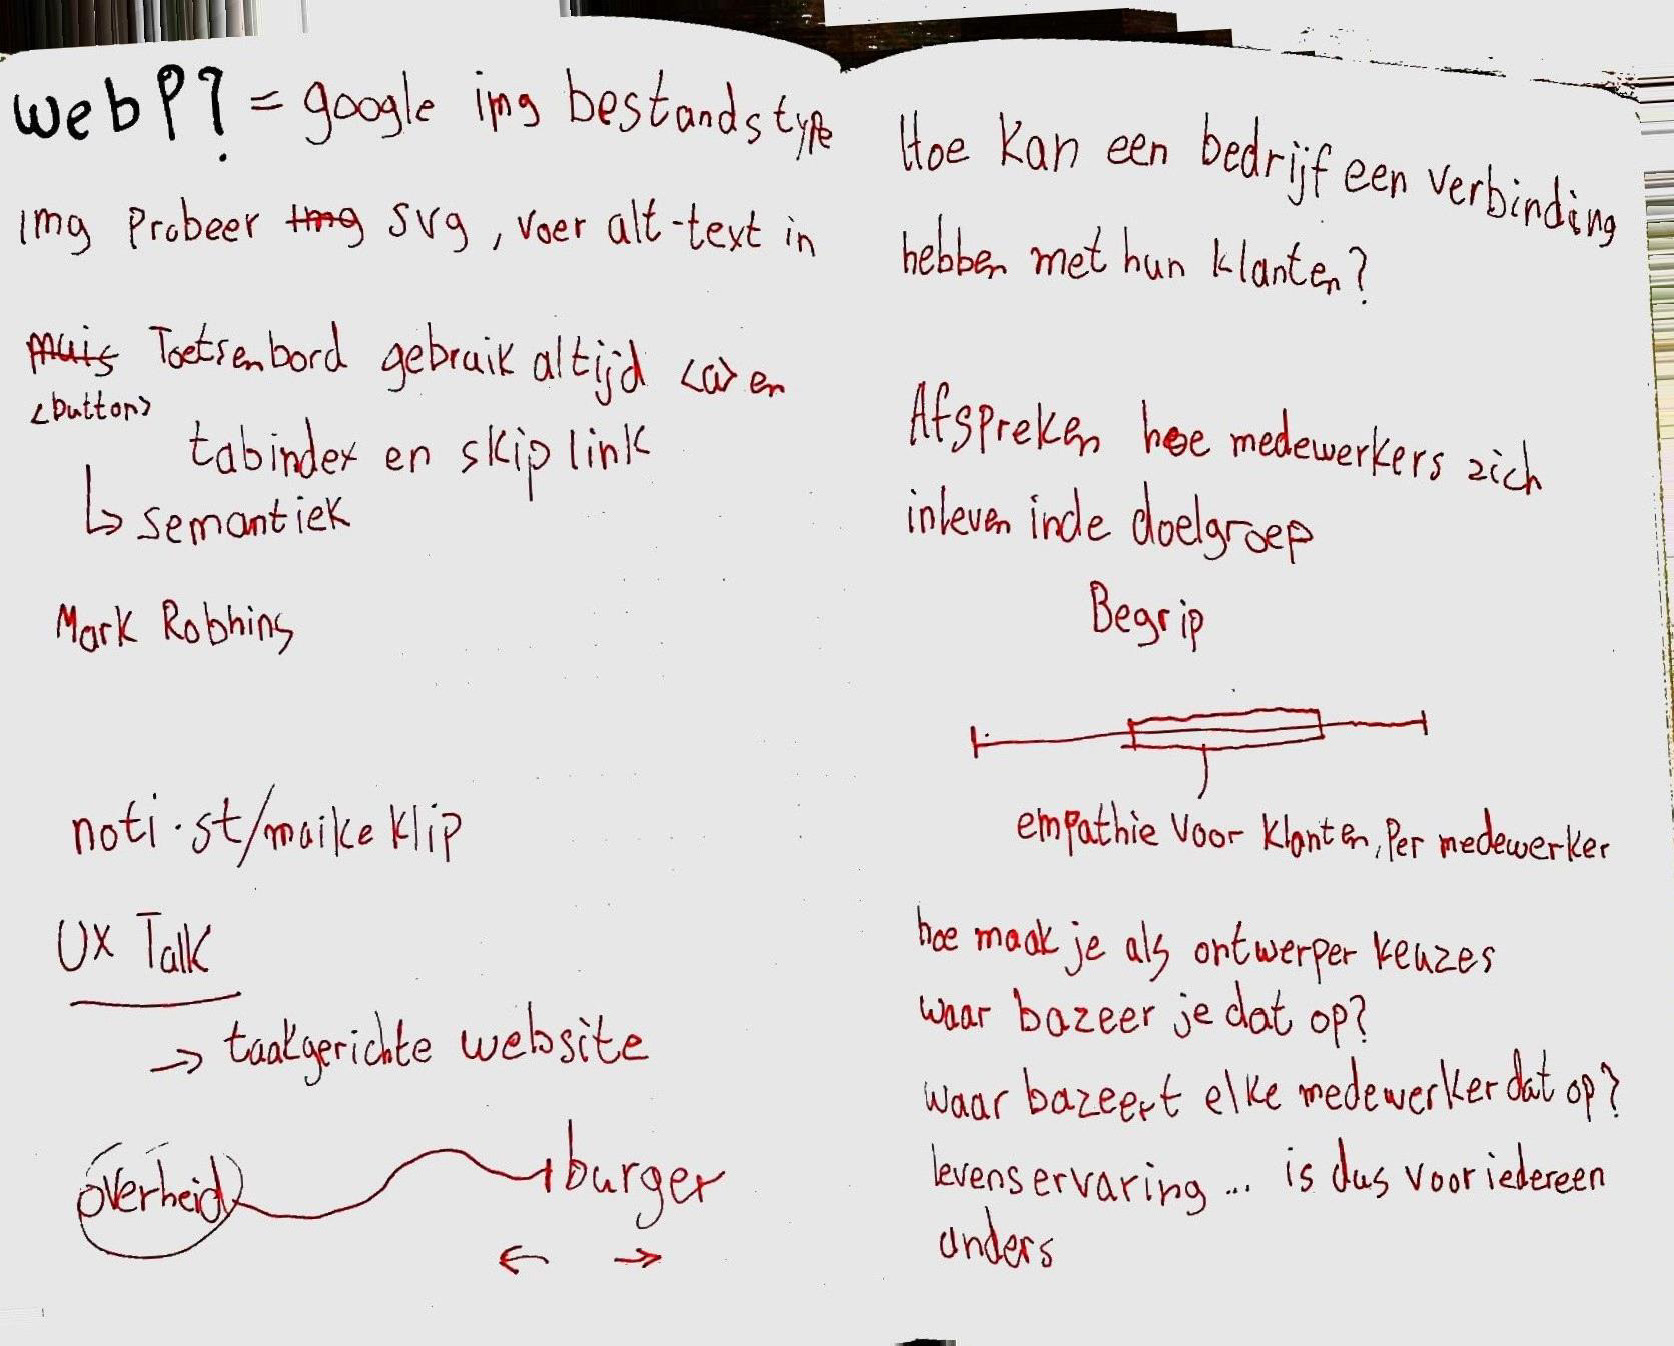 webP? = google img bestandstype
img Probeer img svg, voer alt-text in
muis Toetsenbord gebruik altijd <a> en
<button>
tabindex en skip link
↳ semantiek
Mark Robbins
noti.st/maikeklip
UX Talk
→ taakgerichte website
overheid burger
← →
Hoe kan een bedrijf een verbinding
hebben met hun klanten?
Afspreken hoe medewerkers zich
inleven in de doelgroep
Begrip
empathie voor klanten, per medewerker
hoe maak je als ontwerper keuzes
waar bazeer je dat op?
waar bazeert elke medewerker dat op?
levenservaring ... is dus voor iedereen
anders